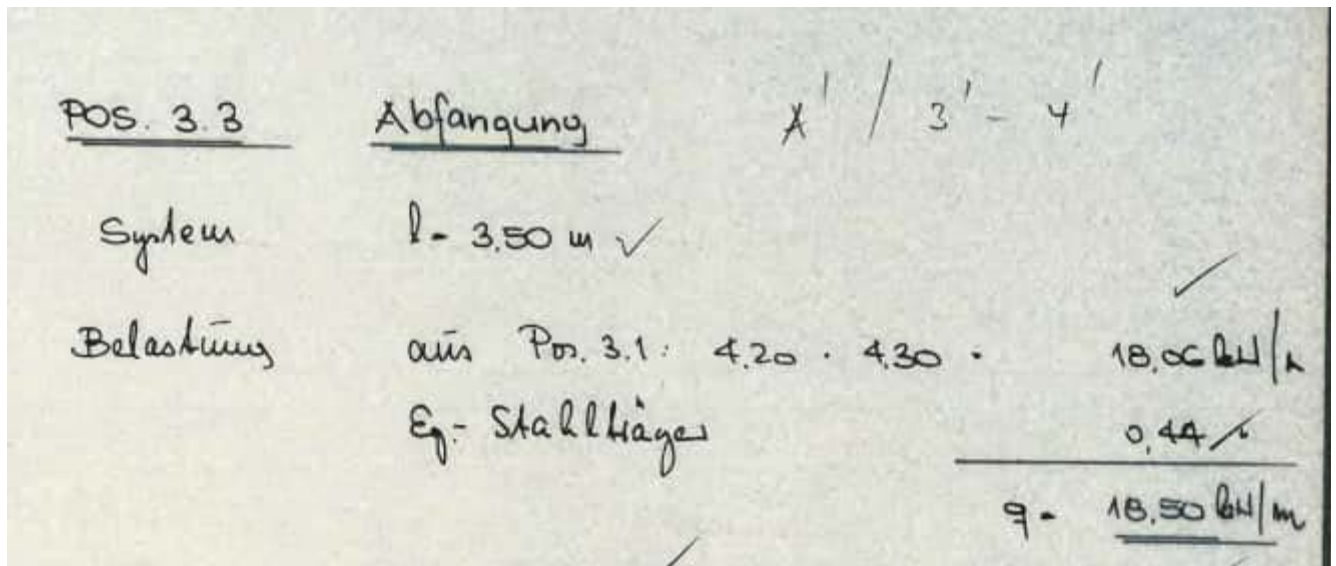 POS. 3.3 Abfangung A' / 3' - 4'
System l = 3.50 m ✓
Belastung aus Pos. 3.1: 4.20 · 4.30 = 18,06 kN/m
Eg.- Stahlträger 0,44
q = 18,50 kN/m